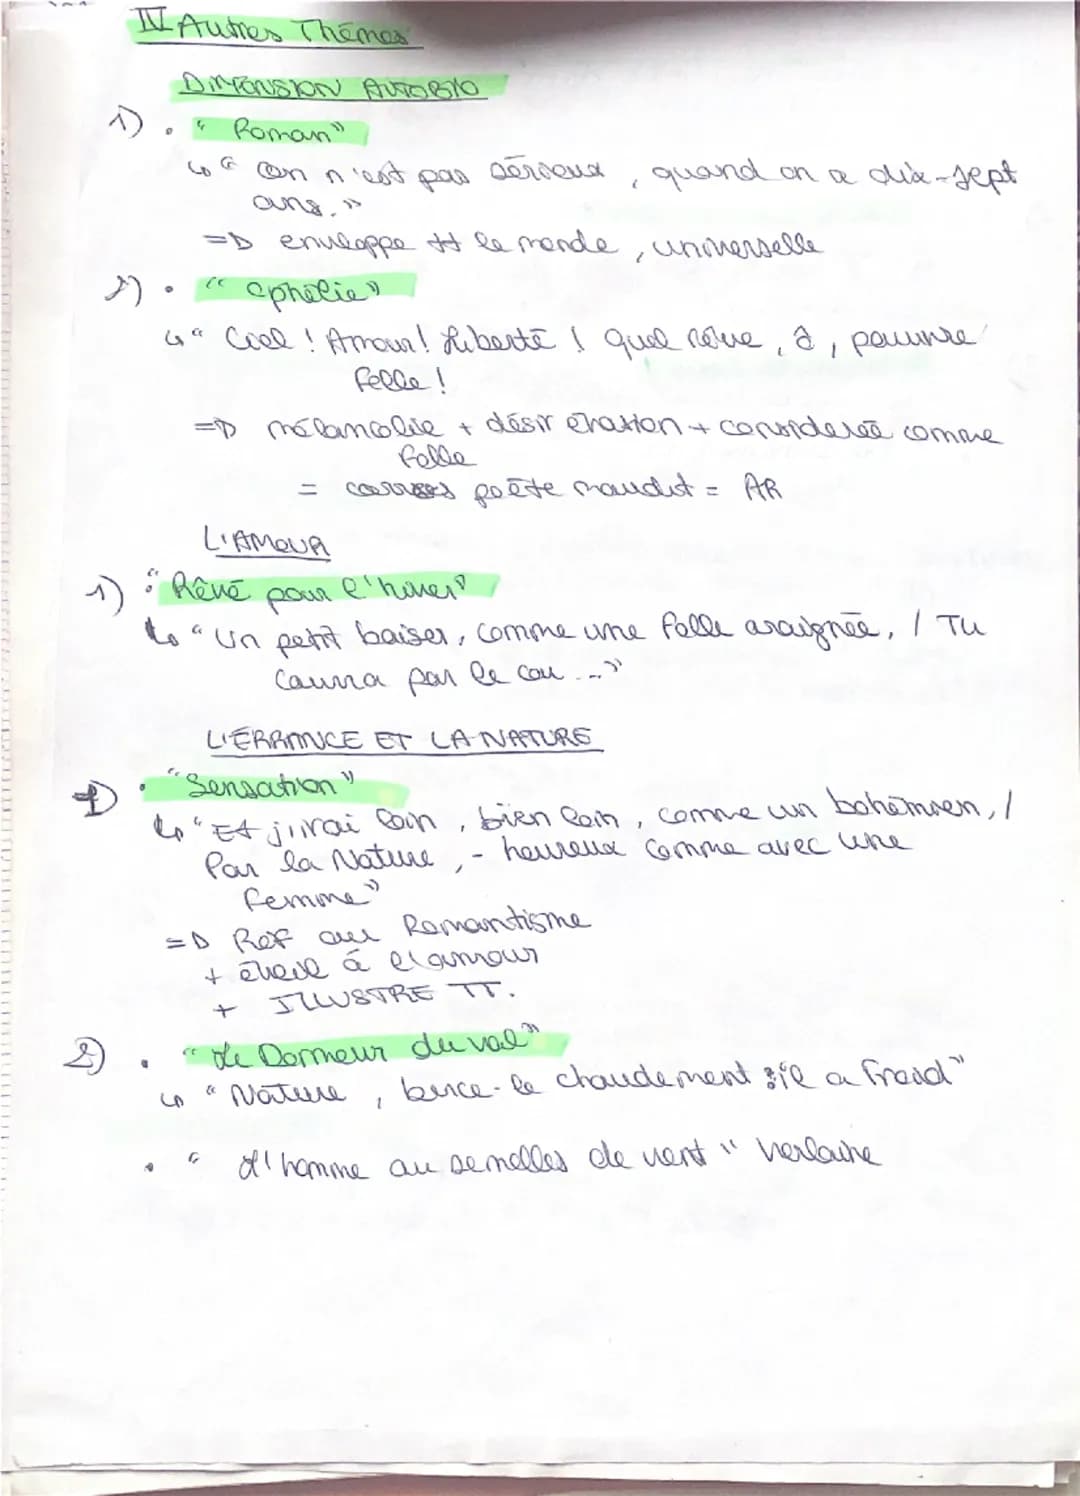 IV Autres Thèmes
DIMENSION AUTOBIO
1) • "Roman"
↳ "On n'est pas sérieux, quand on a dix-sept
ans."
=> enveloppe tt le monde, universelle
2) • "Ophélie"
↳ "Ciel ! Amour ! Liberté ! Quel rêve, ô, pauvre
Folle !
=> mélancolie + désir évasion + considérée comme
Folle
= poète maudit = AR
L'AMOUR
1) • "Rêvé pour l'hiver"
↳ "Un petit baiser, comme une folle araignée, / Tu
Courra par le cou..."
L'ERRANCE ET LA NATURE
1) • "Sensation"
↳ "Et j'irai loin, bien loin, comme un bohémien, /
Par la Nature, - heureux comme avec une
femme"
=> Ref au Romantisme
+ éveil à l'amour
+ ILLUSTRE TT.
2) • "Le Dormeur du val"
↳ "Nature, berce-le chaudement : il a froid"
• "L'homme au semelles de vent" Verlaine